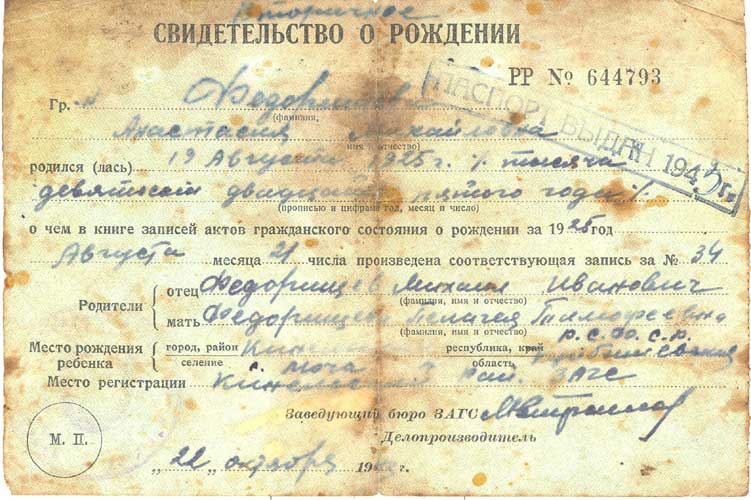 Вторичное
СВИДЕТЕЛЬСТВО О РОЖДЕНИИ
РР № 644793
ПАСПОРТ ВЫДАН 194 г.
Гр.
(фамилия,
Анастасия Михайловна
имя и отчество)
родился (лась) 19 Августа 1925 г. / тысяча
девятьсот двадцать пятого года /
(прописью и цифрами год, месяц и число)
о чем в книге записей актов гражданского состояния о рождении за 1925 год
Августа месяца 21 числа произведена соответствующая запись за № 34
Родители
отец Федорищев Михаил Иванович
(фамилия, имя и отчество)
мать Федорищева Пелагея Тимофеевна
(фамилия, имя и отчество)
Место рождения ребенка
город, район республика, край Р.С.Ф.С.Р.
селение с. область Куйбышевская
Место регистрации Кинельский рай. ЗАГС
Заведующий бюро ЗАГС
Делопроизводитель
М. П.
„22" октября 19 г.